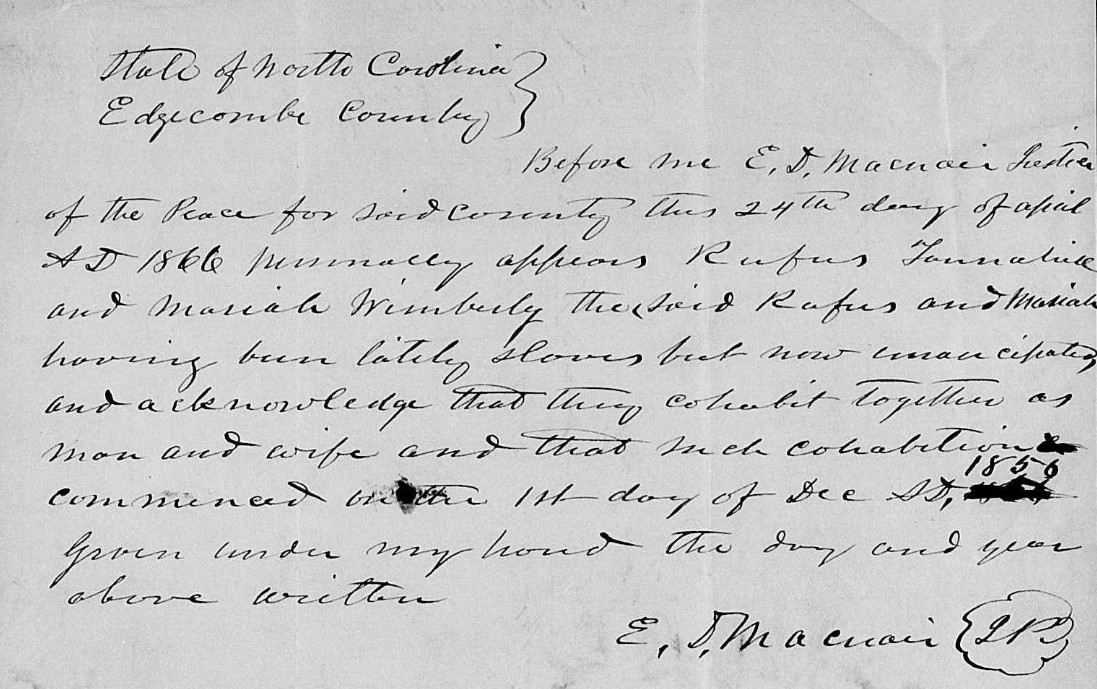 State of North Carolina
Edgecombe County
Before me E, D, Macnair Justice
of the Peace for said county this 24th day of April
AD 1866 personally appears Rufus Tannahill
and Mariah Wimberly the said Rufus and Mariah
having been lately slaves but now emancipated,
and acknowledge that they cohabit together as
man and wife and that such cohabition
commenced on the 1st day of Dec AD, 1856
Given under my hand the day and year
above written
E, D, Macnair JP